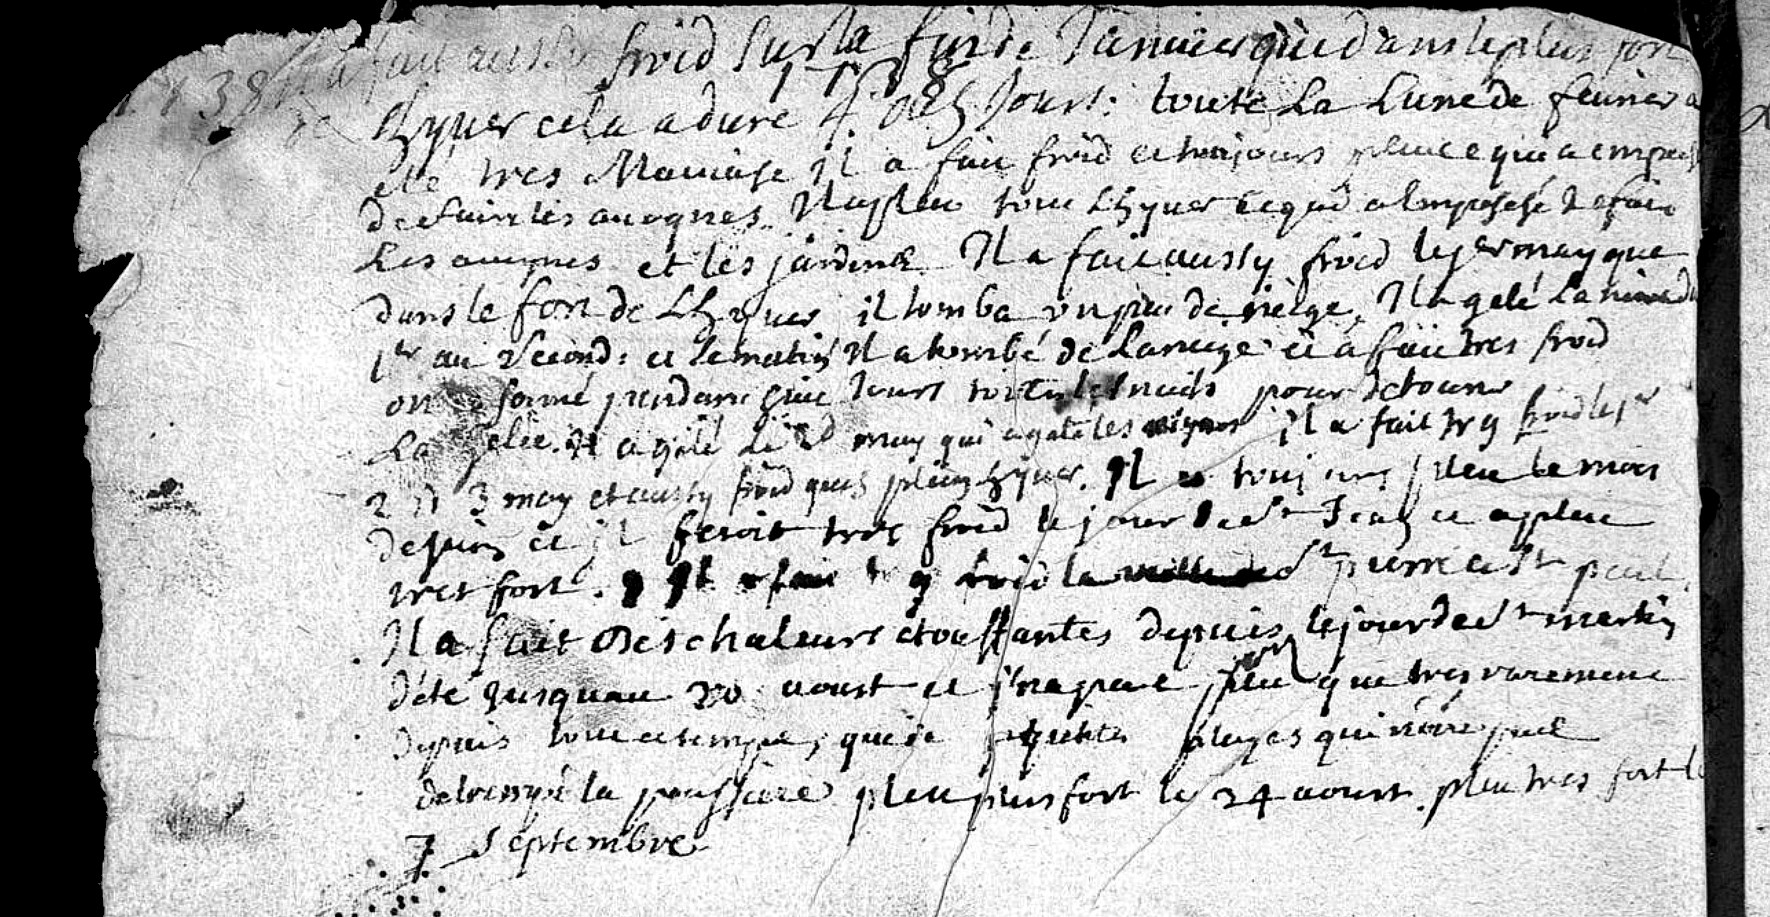 1738 Il a fait aussy froid sur la fin de Januier que dans le plus fort
1738
Lhyuer cela a duré 4 ou 5 Jours. toute La Lune de feurier a
eté tres Mauuaise Il a fait froid et toujours pleu ce qui a empesché
de faire les auoynes. Il a pleu tout Lhyuer ce qui a Impesché de faire
Les auoynes et les jardins Il a fait aussy froid le jer may que
dans le fort de Lhyuer il tomba un peu de neige, Il a gelé La nuit du
1er au Second: et le matin Il a tombé de La neige et a fait tres froid
on a sonné pendant cinq Jours toutes les nuits pour detourner
La gelée. Il a gelé le 2d may qui a gaté les vignes il a fait try froid le 1er
2 et 3 may et aussy froid qu'es plein hyuer. Il a toujours pleu le mois
de juin et il feroit tres froid le jour de st Jean et a pleu
tres fort. Il a fait try froid la veille de st pierre et st paul.
Il a fait des chaleurs etouffantes depuis le jour de st martin
d'eté Jusquau 20 aoust et il n'a pas pleu que tres rarement
depuis tout ce temps, que de petites pluyes qui n'ont pas
detrempé la poussiere pleu plus fort le 24 aoust. pleu tres fort le
7 Septembre